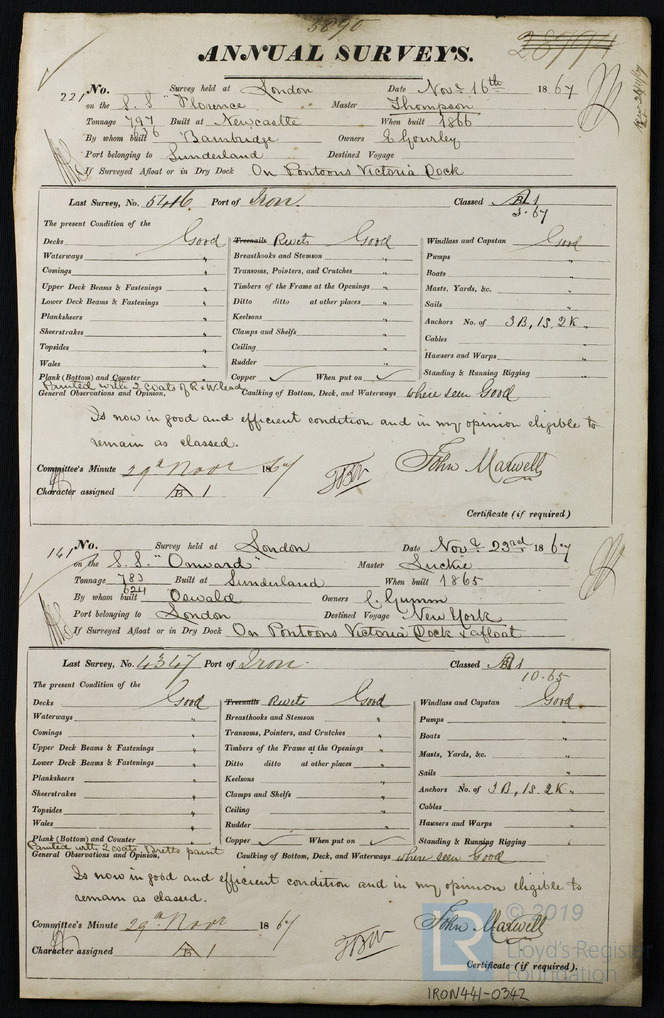 5890
ANNUAL SURVEYS.
221 No. Survey held at London Date Novr 16th 1867
on the S.S "Florence Master Thompson
Tonnage 797 Built at Newcastle When built 1866
636
By whom built Bambridge Owners E Gourley
Port belonging to Sunderland Destined Voyage
If Surveyed Afloat or in Dry Dock On Pontoons Victoria Dock
Last Survey, No. 5416 Port of Iron. Classed A 1
3.67
The present Condition of the
Decks Good Treenails Rivets Good Windlass and Capstan Good
Waterways " Breasthooks and Stemson " Pumps "
Comings " Transoms, Pointers, and Crutches " Boats "
Upper Deck Beams & Fastenings " Timbers of the Frame at the Openings " Masts, Yards, &c. "
Lower Deck Beams & Fastenings " Ditto ditto at other places " Sails "
Planksheers " Keelsons " Anchors No. of 3B, 1S. 2K "
Sheerstrakes " Clamps and Shelfs " Cables "
Topsides " Ceiling " Hawsers and Warps "
Wales " Rudder " Standing & Running Rigging "
Plank (Bottom) and Counter Copper ✓ When put on ✓
Painted with 2 coats of R & W. lead
General Observations and Opinion, Caulking of Bottom, Deck, and Waterways where seen Good
Is now in good and efficient condition and in my opinion eligible to
remain as classed.
Committee's Minute 29th Novr 1867 John Maxwell
Character assigned B 1
Certificate (if required)
141 No. Survey held at London Date Novr 23rd 1867
on the S.S. "Onward" Master Luckie
Tonnage 783 Built at Sunderland When built 1865
624
By whom built Oswald Owners C. Gumm
Port belonging to London Destined Voyage New York
If Surveyed Afloat or in Dry Dock On Pontoons Victoria Dock & afloat
Last Survey, No. 4347 Port of Iron. Classed A 1
10.65
The present Condition of the
Decks Good Treenails Rivets Good Windlass and Capstan Good
Waterways " Breasthooks and Stemson " Pumps "
Comings " Transoms, Pointers, and Crutches " Boats "
Upper Deck Beams & Fastenings " Timbers of the Frame at the Openings " Masts, Yards, &c. "
Lower Deck Beams & Fastenings " Ditto ditto at other places " Sails "
Planksheers " Keelsons " Anchors No. of 3B, 1S. 2K "
Sheerstrakes " Clamps and Shelfs " Cables "
Topsides " Ceiling " Hawsers and Warps "
Wales " Rudder " Standing & Running Rigging "
Plank (Bottom) and Counter Copper ✓ When put on ✓
Painted with 2 coats Bretts paint
General Observations and Opinion, Caulking of Bottom, Deck, and Waterways where seen Good
Is now in good and efficient condition and in my opinion eligible to
remain as classed.
Committee's Minute 29th Novr 1867 John Maxwell
Character assigned B 1
Certificate (if required).
© 2019
LR Lloyd's Register
Foundation
IRON441-0342